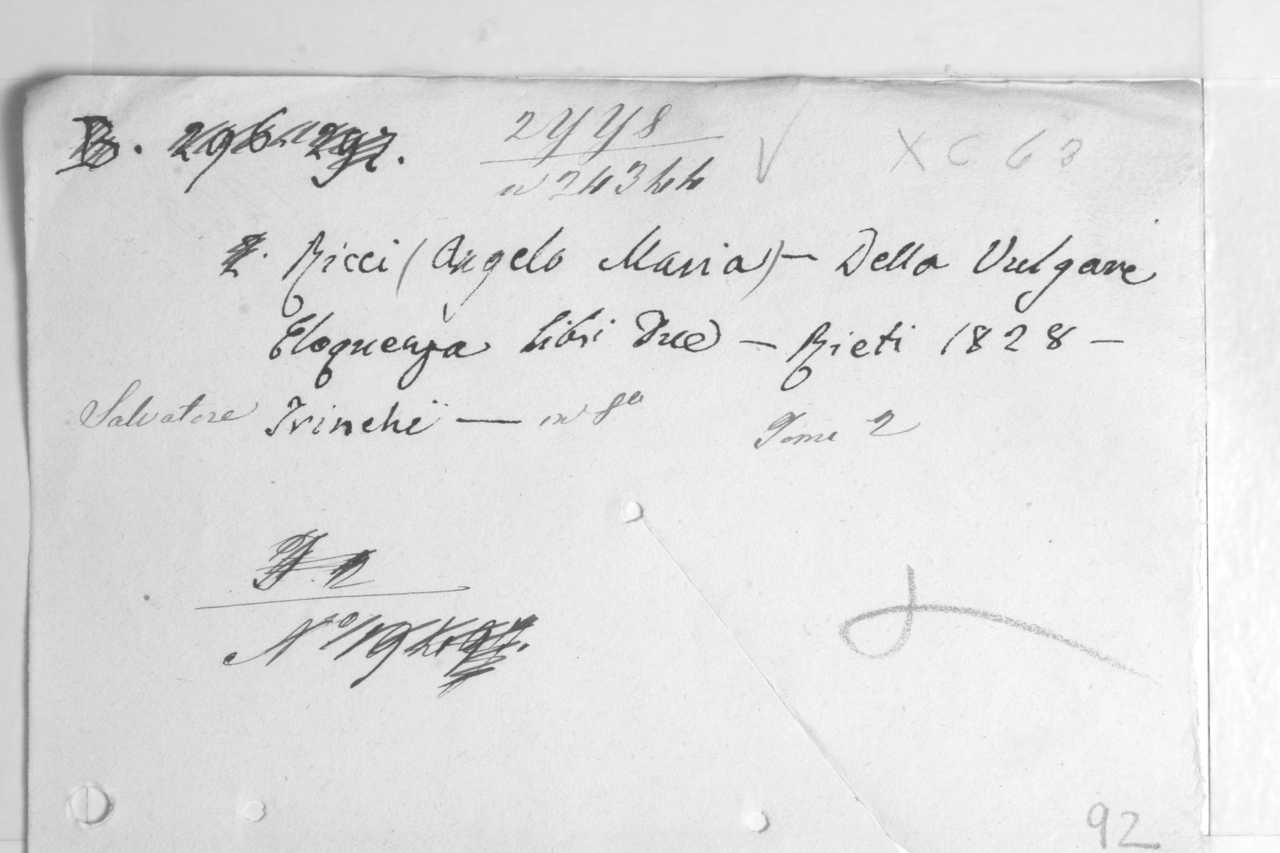 B. 296-297.
2778
n 24344
XC 63
2. Ricci (Angelo Maria) — Della Vulgare
Eloquenza libri Due — Rieti 1828 —
Salvatore Trinchi — in 8º Tomi 2
Nº
92